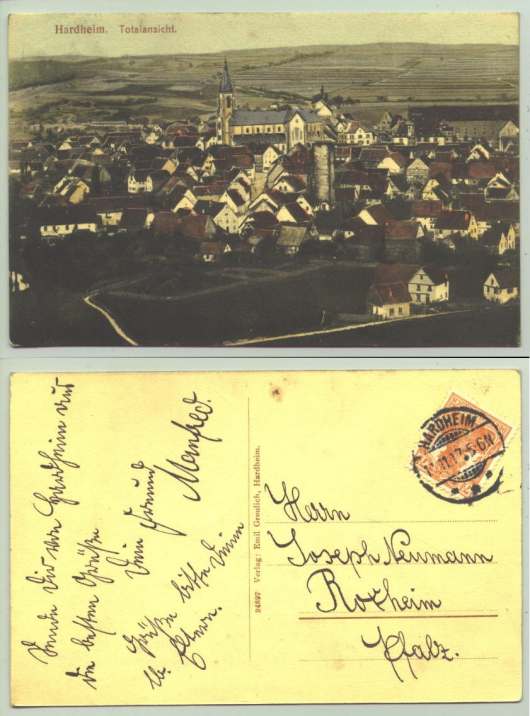 Hardheim. Totalansicht.
Sende dir von Hardheim aus
die besten Grüße
Dein Freund
Manfred.
Grüße bitte Deine
lb. Eltern.
24897 Verlag: Emil Grendlich, Hardheim.
HARDHEIM
11.17.5-6N
Herrn
Joseph Neumann
Roxheim
Pfalz.